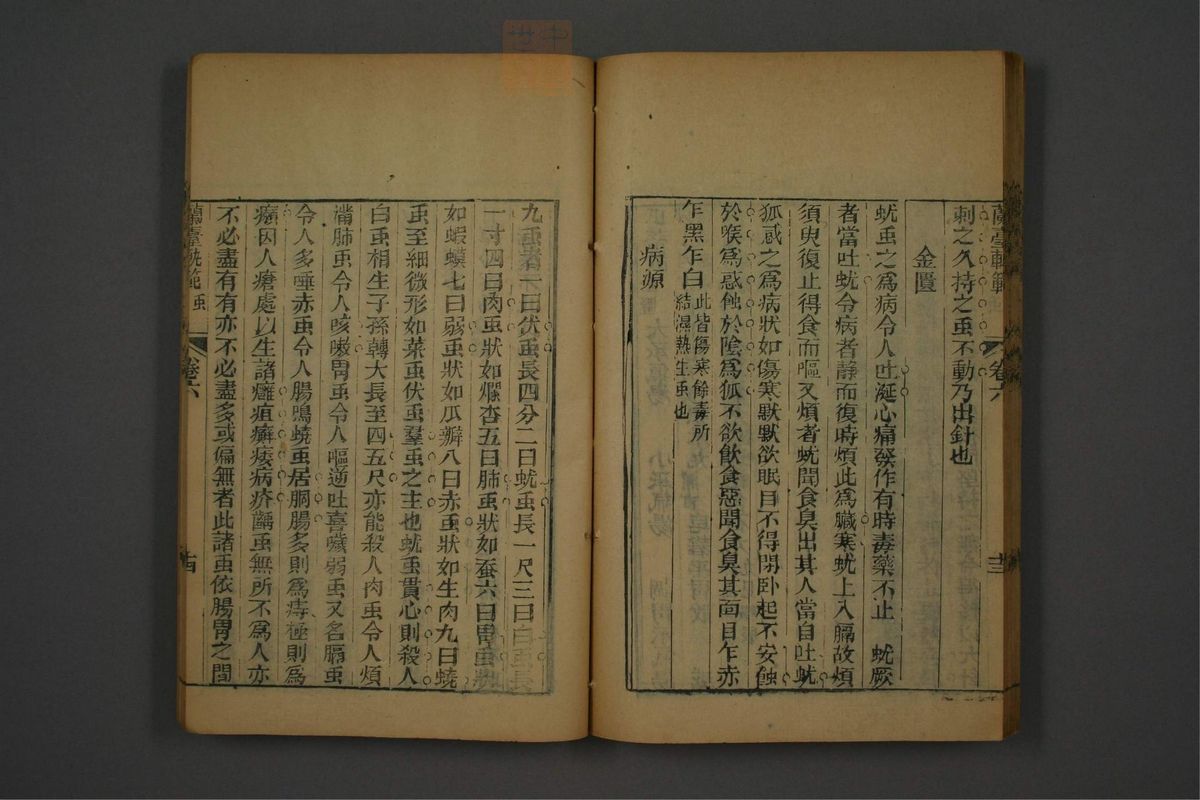 蘭臺軌範
卷六
刺之久持之䖝不動乃出針也
金匱
蚘䖝之爲病令人吐涎心痛發作有時毒藥不止 蚘厥
者當吐蚘令病者靜而復時煩此爲臟寒蚘上入膈故煩
須臾復止得食而嘔又煩者蚘聞食臭出其人當自吐蚘
狐惑之爲病狀如傷寒默默欲眠目不得閉卧起不安蝕
於喉爲惑蝕於陰爲狐不欲飲食惡聞食臭其面目乍赤
乍黑乍白
此皆傷寒餘毒所
結濕熱生䖝也
病源
九䖝者一曰伏䖝長四分二曰蚘䖝長一尺三曰白䖝長
一寸四曰肉䖝狀如爛杏五曰肺䖝狀如蚕六曰胃䖝狀
如蝦蟆七曰弱䖝狀如瓜瓣八曰赤䖝狀如生肉九曰蟯
䖝至細微形如菜䖝伏䖝羣䖝之主也蚘䖝貫心則殺人
白䖝相生子孫轉大長至四五尺亦能殺人肉䖝令人煩
滿肺䖝令人咳嗽胃䖝令人嘔逆吐喜噦弱䖝又名膈䖝
令人多唾赤䖝令人腸鳴蟯䖝居胴腸多則爲痔極則爲
癩因人瘡處以生諸癰疽癬瘻病疥齲䖝無所不爲人亦
不必盡有有亦不必盡多或偏無者此諸䖝依腸胃之間
蘭臺軌範
䖝
卷六